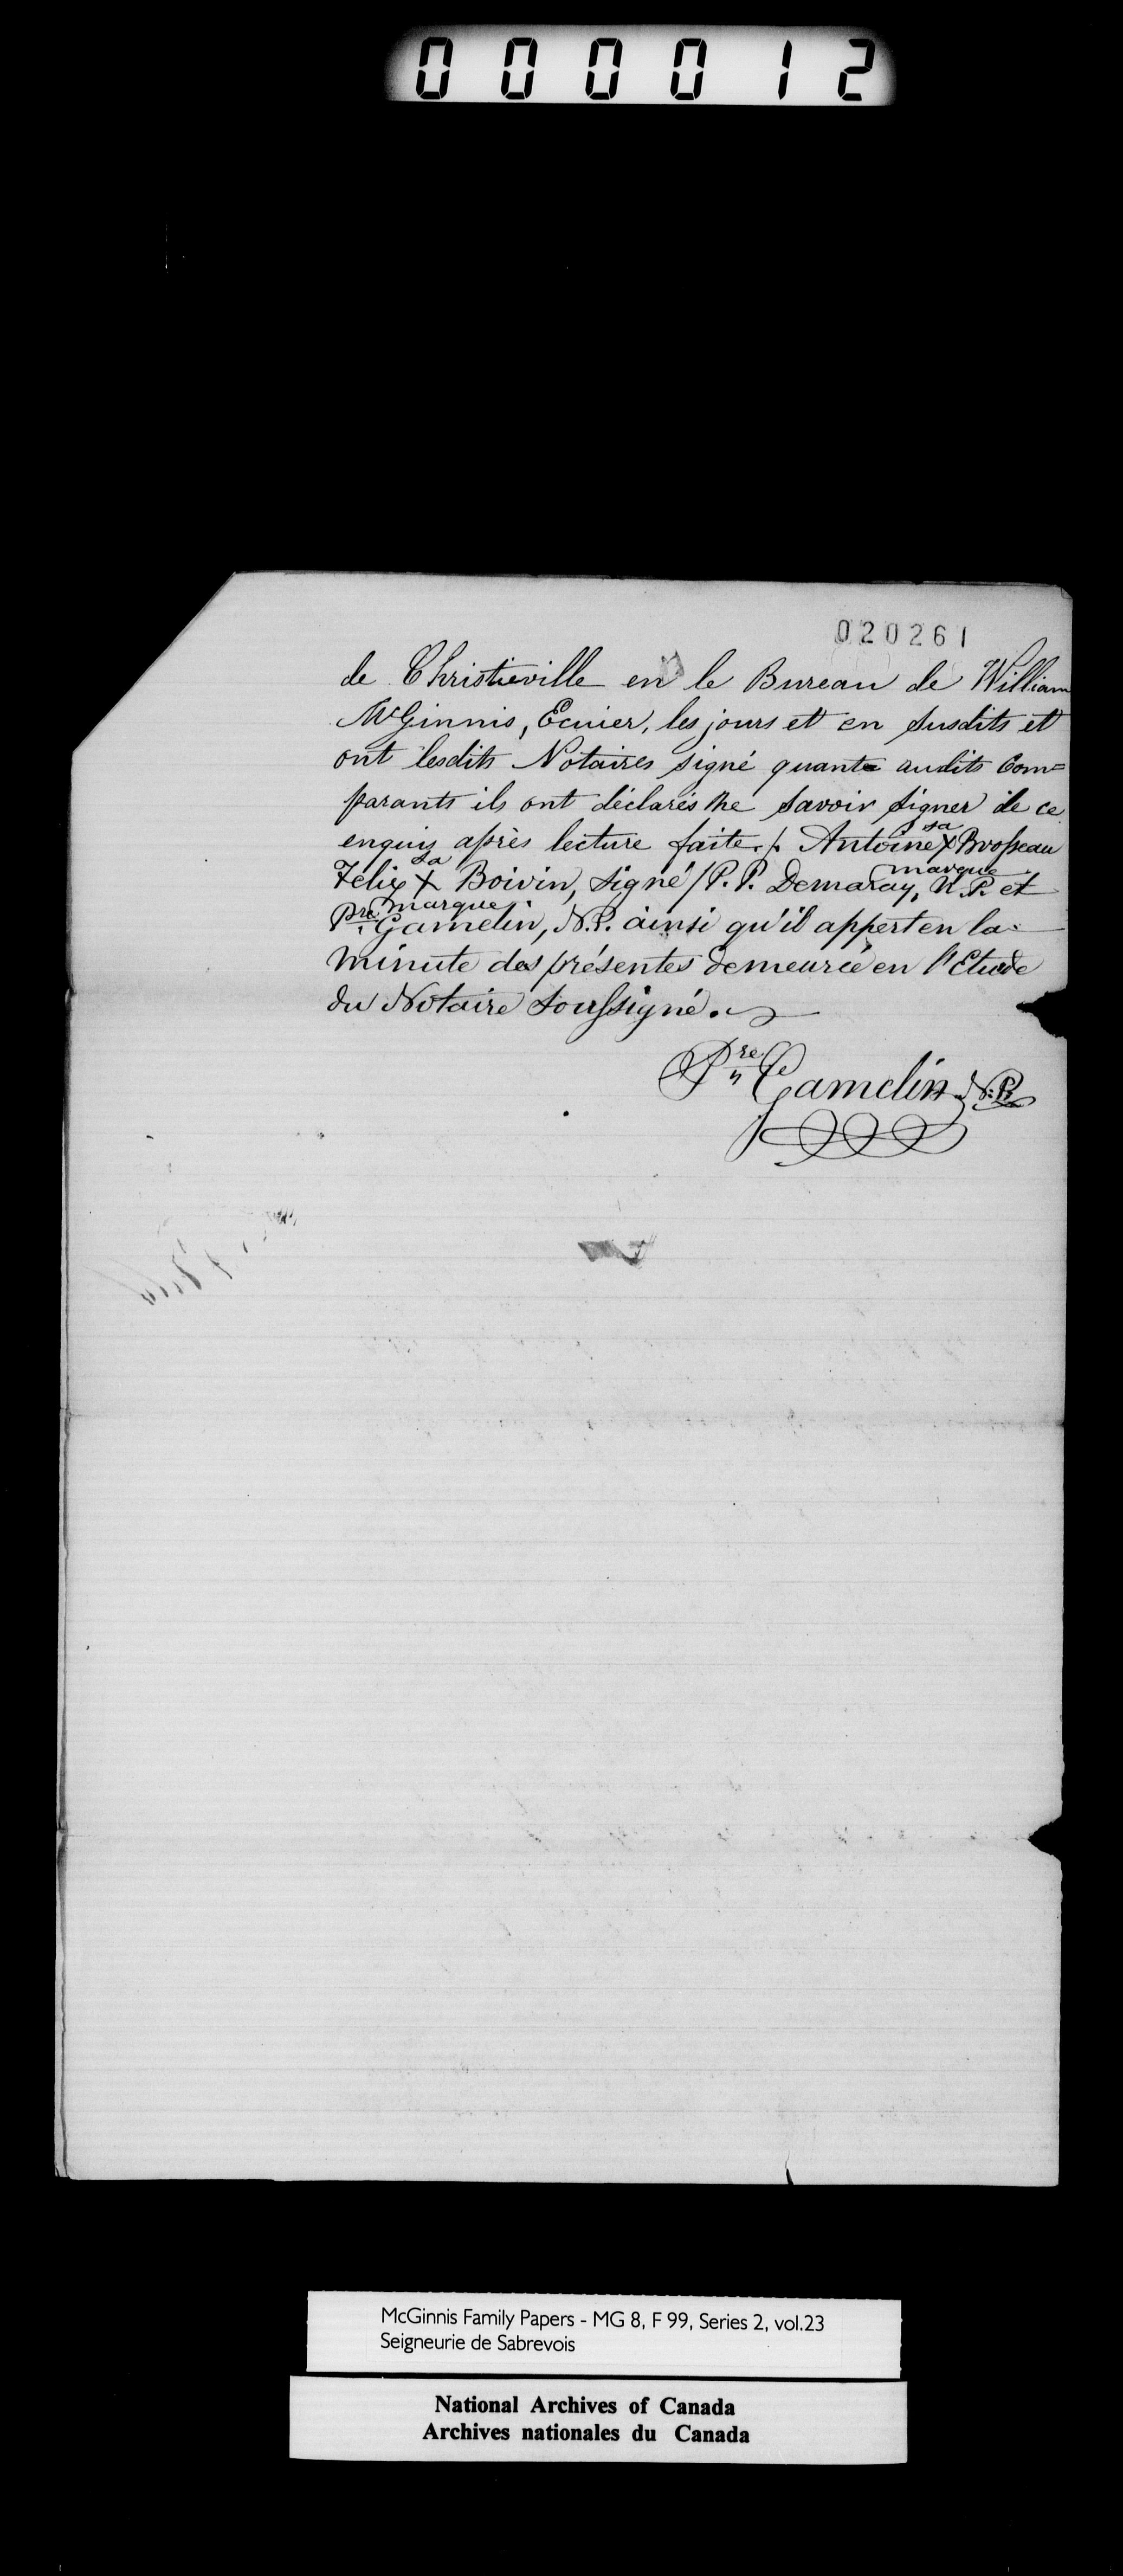 000012
020261
de Christieville en le Bureau de William
McGinnis, Ecuier, les jours et en susdits et
ont lesdits Notaires signé quante audits Com=
parants ils ont déclarés ne savoir signer de ce
enquis après lecture faite. /. Antoine sa X marque Brosseau
Felix sa X marque Boivin, signé / P. P. Demaray, N.P. et
Pre. Gamelin, N.P. ainsi qu'il appert en la
minute des présentes demeurée en l'Etude
du Notaire soussigné.
Pre Gamelin N.P.
McGinnis Family Papers - MG 8, F 99, Series 2, vol.23
Seigneurie de Sabrevois
National Archives of Canada
Archives nationales du Canada